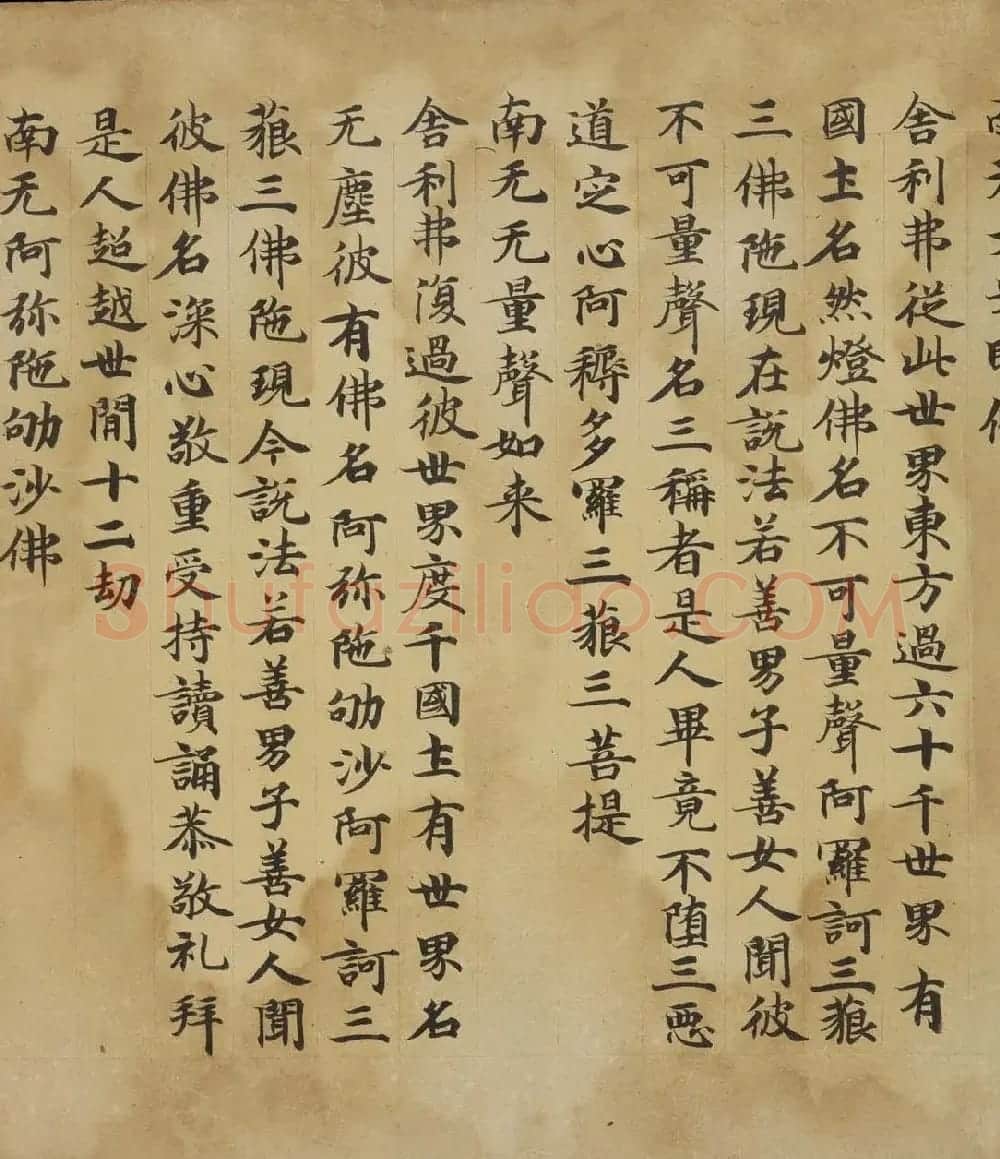 舍利弗從此世界東方過六十千世界有
國土名然燈佛名不可量聲阿羅訶三藐
三佛陁現在説法若善男子善女人聞彼
不可量聲名三稱者是人畢竟不堕三惡
道定心阿耨多羅三藐三菩提
南无无量聲如来
舍利弗復過彼世界度千國土有世界名
无塵彼有佛名阿弥陁劬沙阿羅訶三
藐三佛陁現今説法若善男子善女人聞
彼佛名深心敬重受持讀誦恭敬礼拜
是人超越世間十二劫
南无阿弥陁劬沙佛
Shufaziliao.COM